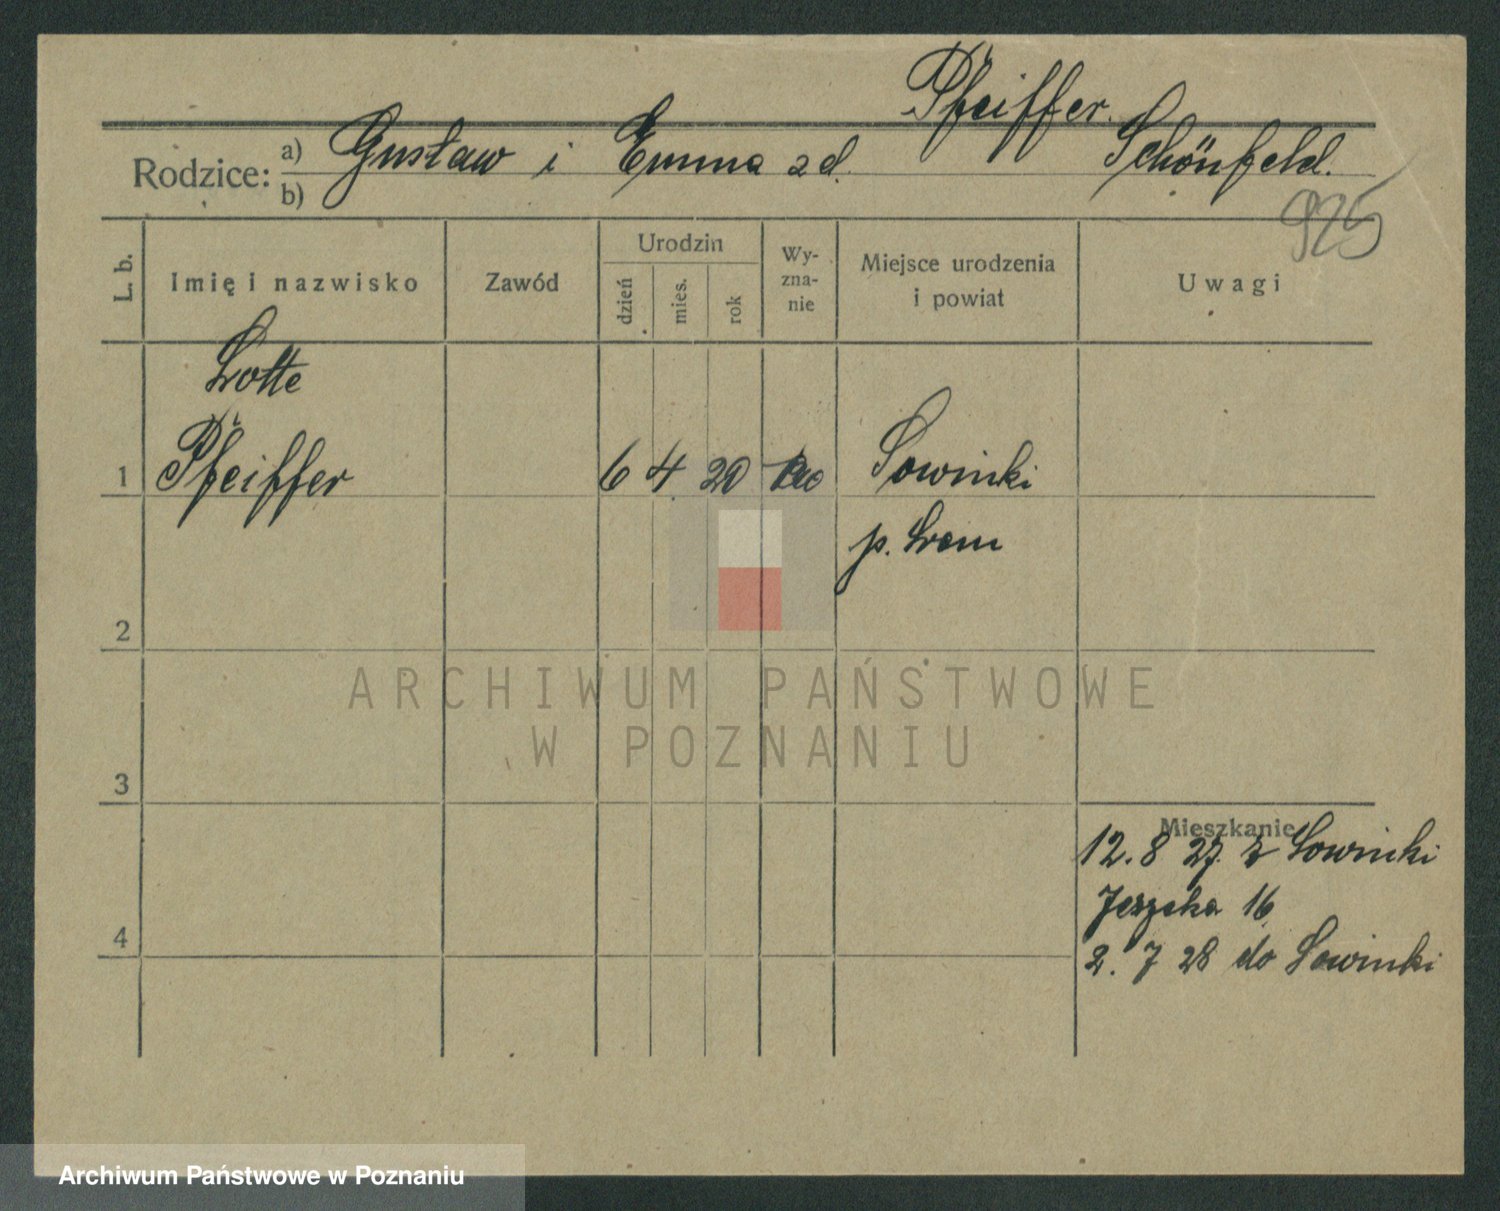 Pfeiffer.
Rodzice: a) Gustaw i Emma zd. Schönfeld.
b)
925
L. b.
Imię i nazwisko
Zawód
Urodzin
dzień
mies.
rok
Wy-
zna-
nie
Miejsce urodzenia
i powiat
Uwagi
Lotte
1 Pfeiffer 6 4 20 Sowinki
p. Śrem
2
3
4
ARCHIWUM PAŃSTWOWE
W POZNANIU
Mieszkanie
12. 8 27. z Sowinki
16
2. 7 28 do Sowinki
Archiwum Państwowe w Poznaniu